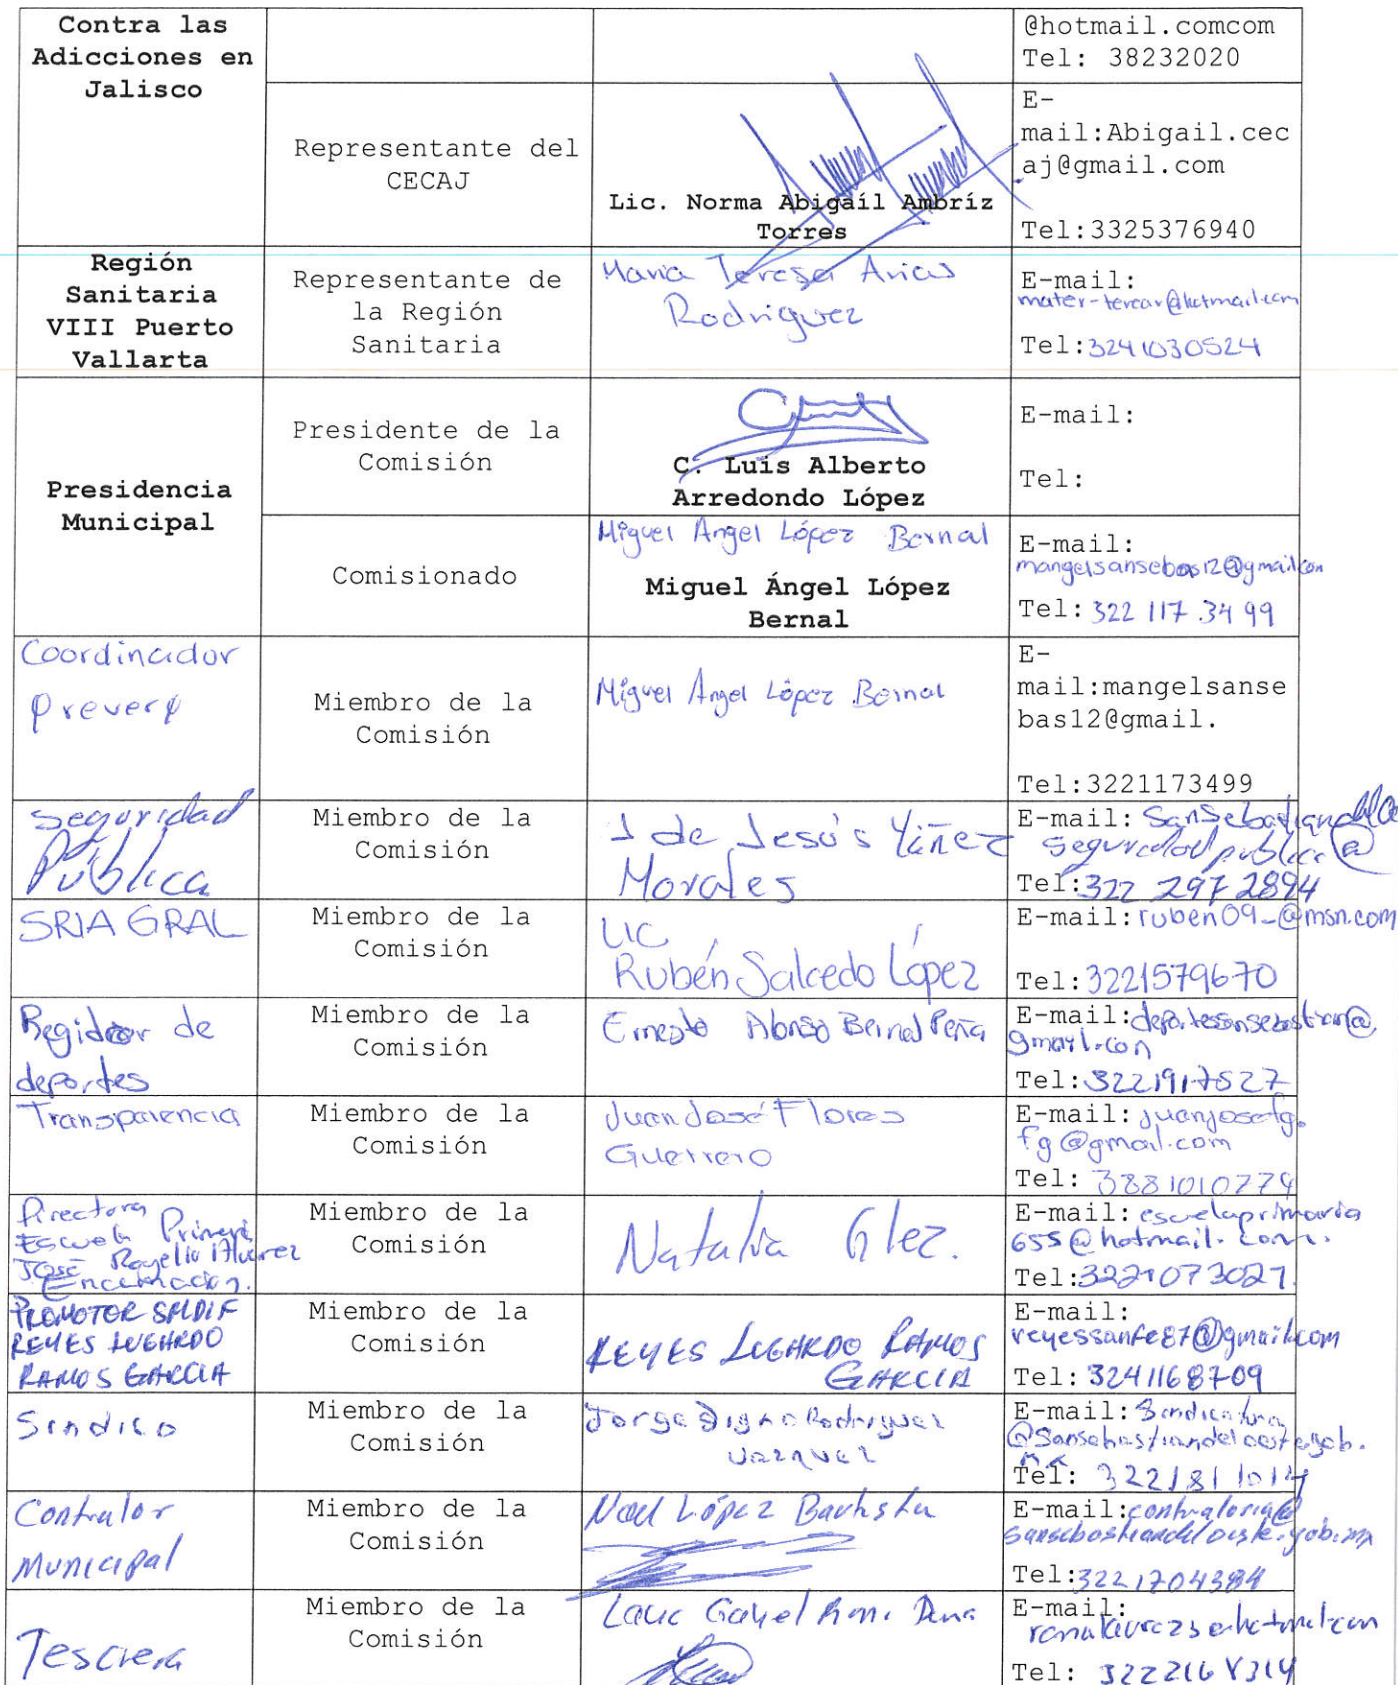 Contra las
Adicciones en
Jalisco
@hotmail.comcom
Tel: 38232020
Representante del
CECAJ
Lic. Norma Abigaíl Ambríz
Torres
E-
mail:Abigail.cec
aj@gmail.com
Tel:3325376940
Región
Sanitaria
VIII Puerto
Vallarta
Representante de
la Región
Sanitaria
Maria Teresa Arias
Rodriguez
E-mail:
mater-terear@hotmail.com
Tel:3241030524
Presidencia
Municipal
Presidente de la
Comisión
C. Luis Alberto
Arredondo López
E-mail:
Tel:
Comisionado
Miguel Angel López Bernal
Miguel Ángel López
Bernal
E-mail:
mangelsansebas12@gmail.com
Tel: 322 117 34 99
Coordinador
Miembro de la
Comisión
Miguel Angel López Bernal
E-
mail:mangelsanse
bas12@gmail.
Tel:3221173499
Seguridad
Pública
Miembro de la
Comisión
J de Jesús Yáñez
Morales
E-mail:
seguridad publica @
Tel:322 297 2894
SRIA GRAL
Miembro de la
Comisión
LIC
Rubén Salcedo López
E-mail: ruben09_@msn.com
Tel:3221579670
Regidor de
deportes
Miembro de la
Comisión
Ernesto Alonso Bernal Peña
E-mail: deportesansebastian@
gmail.con
Tel:3221917527
Transparencia
Miembro de la
Comisión
Juan José Flores
Guerrero
E-mail: juanjosefg.
fg@gmail.com
Tel: 3881010779
Directora
Escuela Primaria
José Rogelio Alvarez
Encarnación.
Miembro de la
Comisión
Natalia Glez.
E-mail: escuelaprimaria
655@hotmail.com.
Tel:3221073021
PROMOTOR SMDIF
REYES LUGARDO
RAMOS GARCIA
Miembro de la
Comisión
REYES LUGARDO RAMOS
GARCIA
E-mail:
reyessanfe87@gmail.com
Tel: 3241168709
Sindico
Miembro de la
Comisión
Jorge Digno Rodriguez
Vazquez
E-mail: Sindicatura
@Sansebastiandeloeste.gob.
mx
Tel: 3221811014
Contralor
Municipal
Miembro de la
Comisión
Noel López Bautista
E-mail:contraloria@
sansebastiandeloeste.gob.mx
Tel:3221704384
Tesorera
Miembro de la
Comisión
E-mail:
Tel: